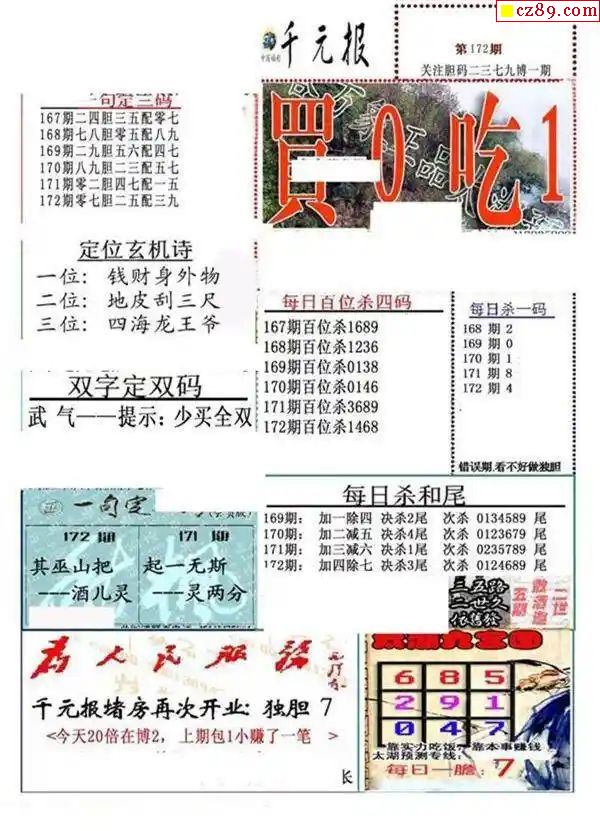 cz89.com
千元报
第172期
关注胆码二三七九博一期
一句定三码
167期二四胆三五配零七
168期七八胆零五配八九
169期二九胆五六配四七
170期八九胆二三配五七
171期零二胆四七配一五
172期零七胆二五配三九
買0吃1
定位玄机诗
一位: 钱财身外物
二位: 地皮刮三尺
三位: 四海龙王爷
每日百位杀四码
167期百位杀1689
168期百位杀1236
169期百位杀0138
170期百位杀0146
171期百位杀3689
172期百位杀1468
每日杀一码
168 期 2
169 期 0
170 期 1
171 期 8
172 期 4
错误期,看不好做独胆
双字定双码
武 气——提示: 少买全双
一句定
172 期
171 期
其巫山把
---酒儿灵
起一无斯
---灵两分
每日杀和尾
169期: 加一除四 决杀2尾 次杀 0134589 尾
170期: 加二减五 决杀4尾 次杀 0123479 尾
171期: 加三减六 决杀1尾 次杀 0235789 尾
172期: 加四除七 决杀3尾 次杀 0124689 尾
为人民服务
千元报堵房再次开业: 独胆 7
<今天20倍在博2, 上期包1小赚了一笔 >
长
6 8 5
2 9 1
0 4 7
靠实力吃饭,靠本事赚钱
太湖预测专线:
每日一胆: 7